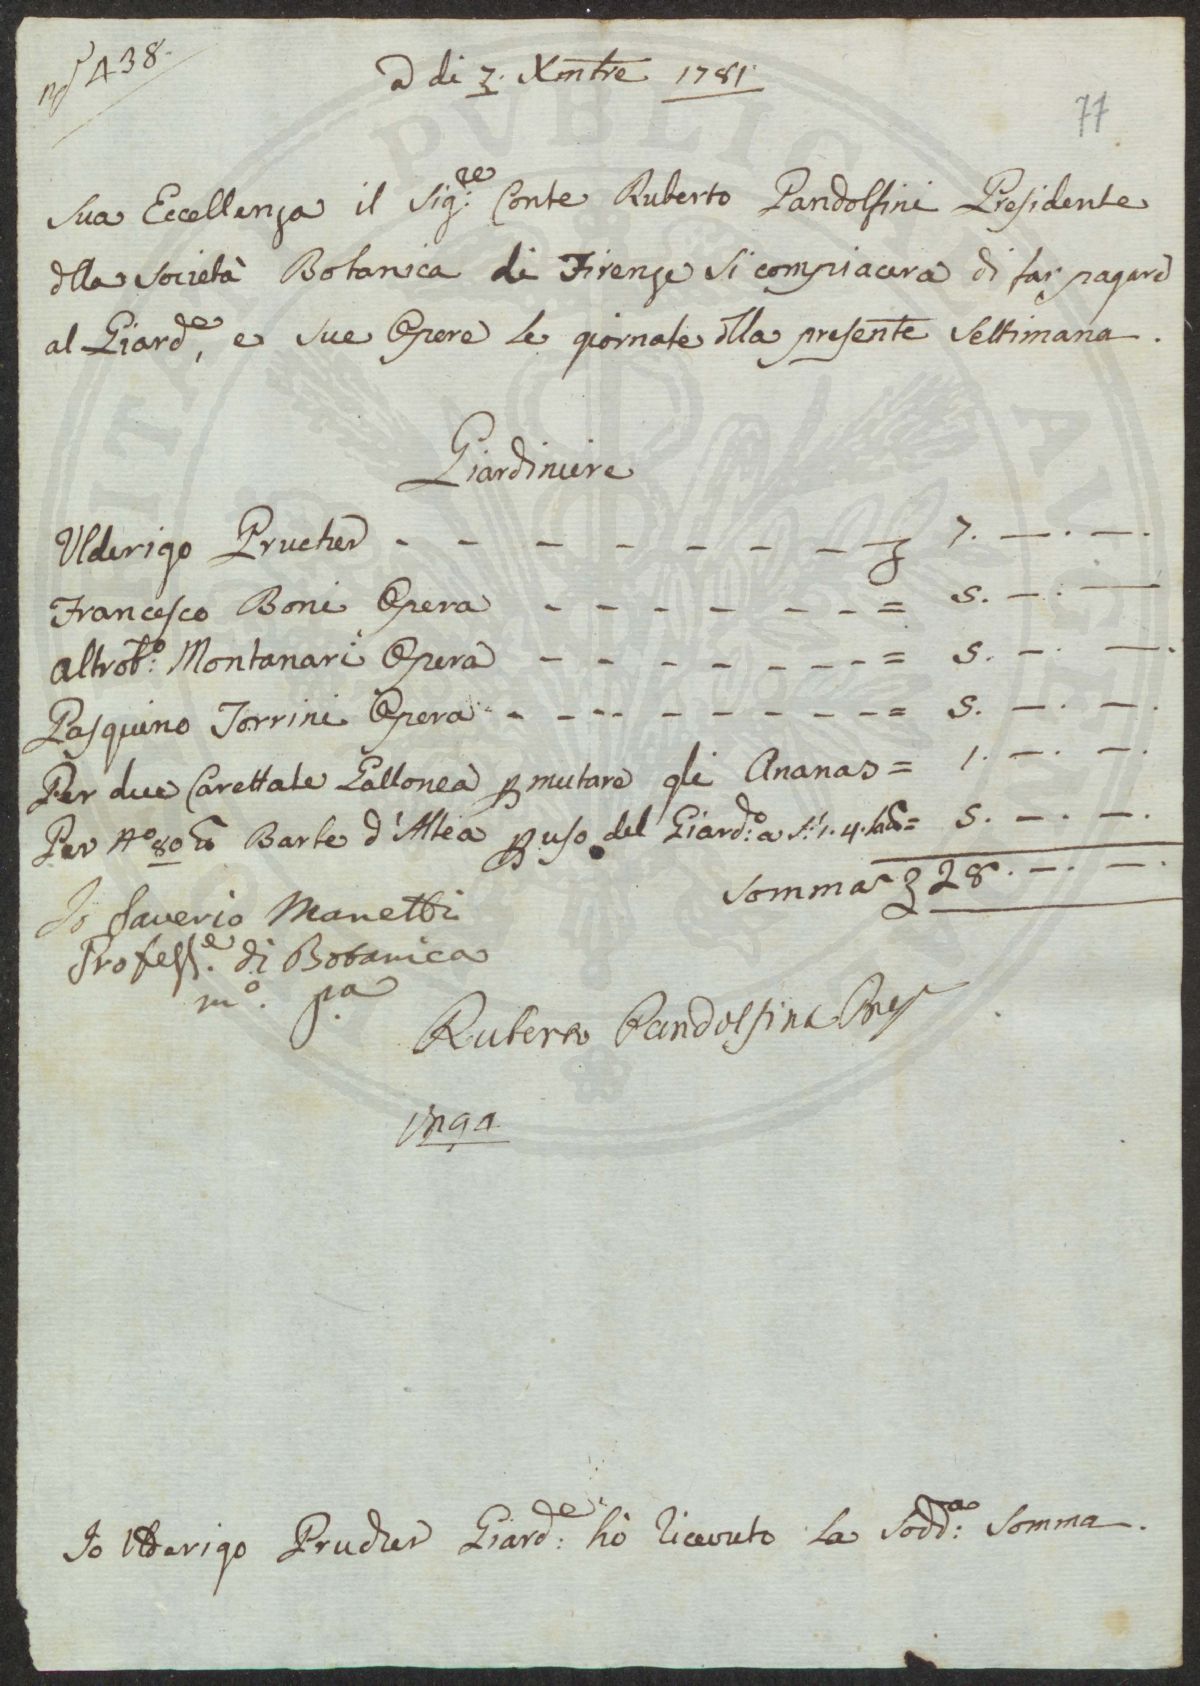 nº 438.
77
A di 7. Xmbre 1781.
Sua Eccellenza il Sig:re Conte Ruberto Pandolfini Presidente
dlla Società Botanica di Firenze si compiacerà di far pagare
al Giard:e, e sue Opere le giornate dlla presente Settimana.
Giardiniere
Ulderigo Prucher - - - - - - - - £ 7. —. —.
Francesco Boni Opera - - - - - - - = 5. —. —
Altrob:o Montanari Opera - - - - - - - = 5. —. —.
Pasquino Torrini Opera - - - - - - - - = 5. —. —.
Per due Carettate Vallonea p mutare gli Ananas = 1. —. —.
Per Nº 80 Barbe d'Altea p uso del Giard:o a s: 1. 4. = 5. —. —.
Somma £ 28. —. —.
Io Saverio Manetti
Profess:e di Botanica
mº. pa
Ruberto Pandolfini Pres
Io Ulderigo Prucher Giard:e hò ricevuto la Sodd:a Somma.